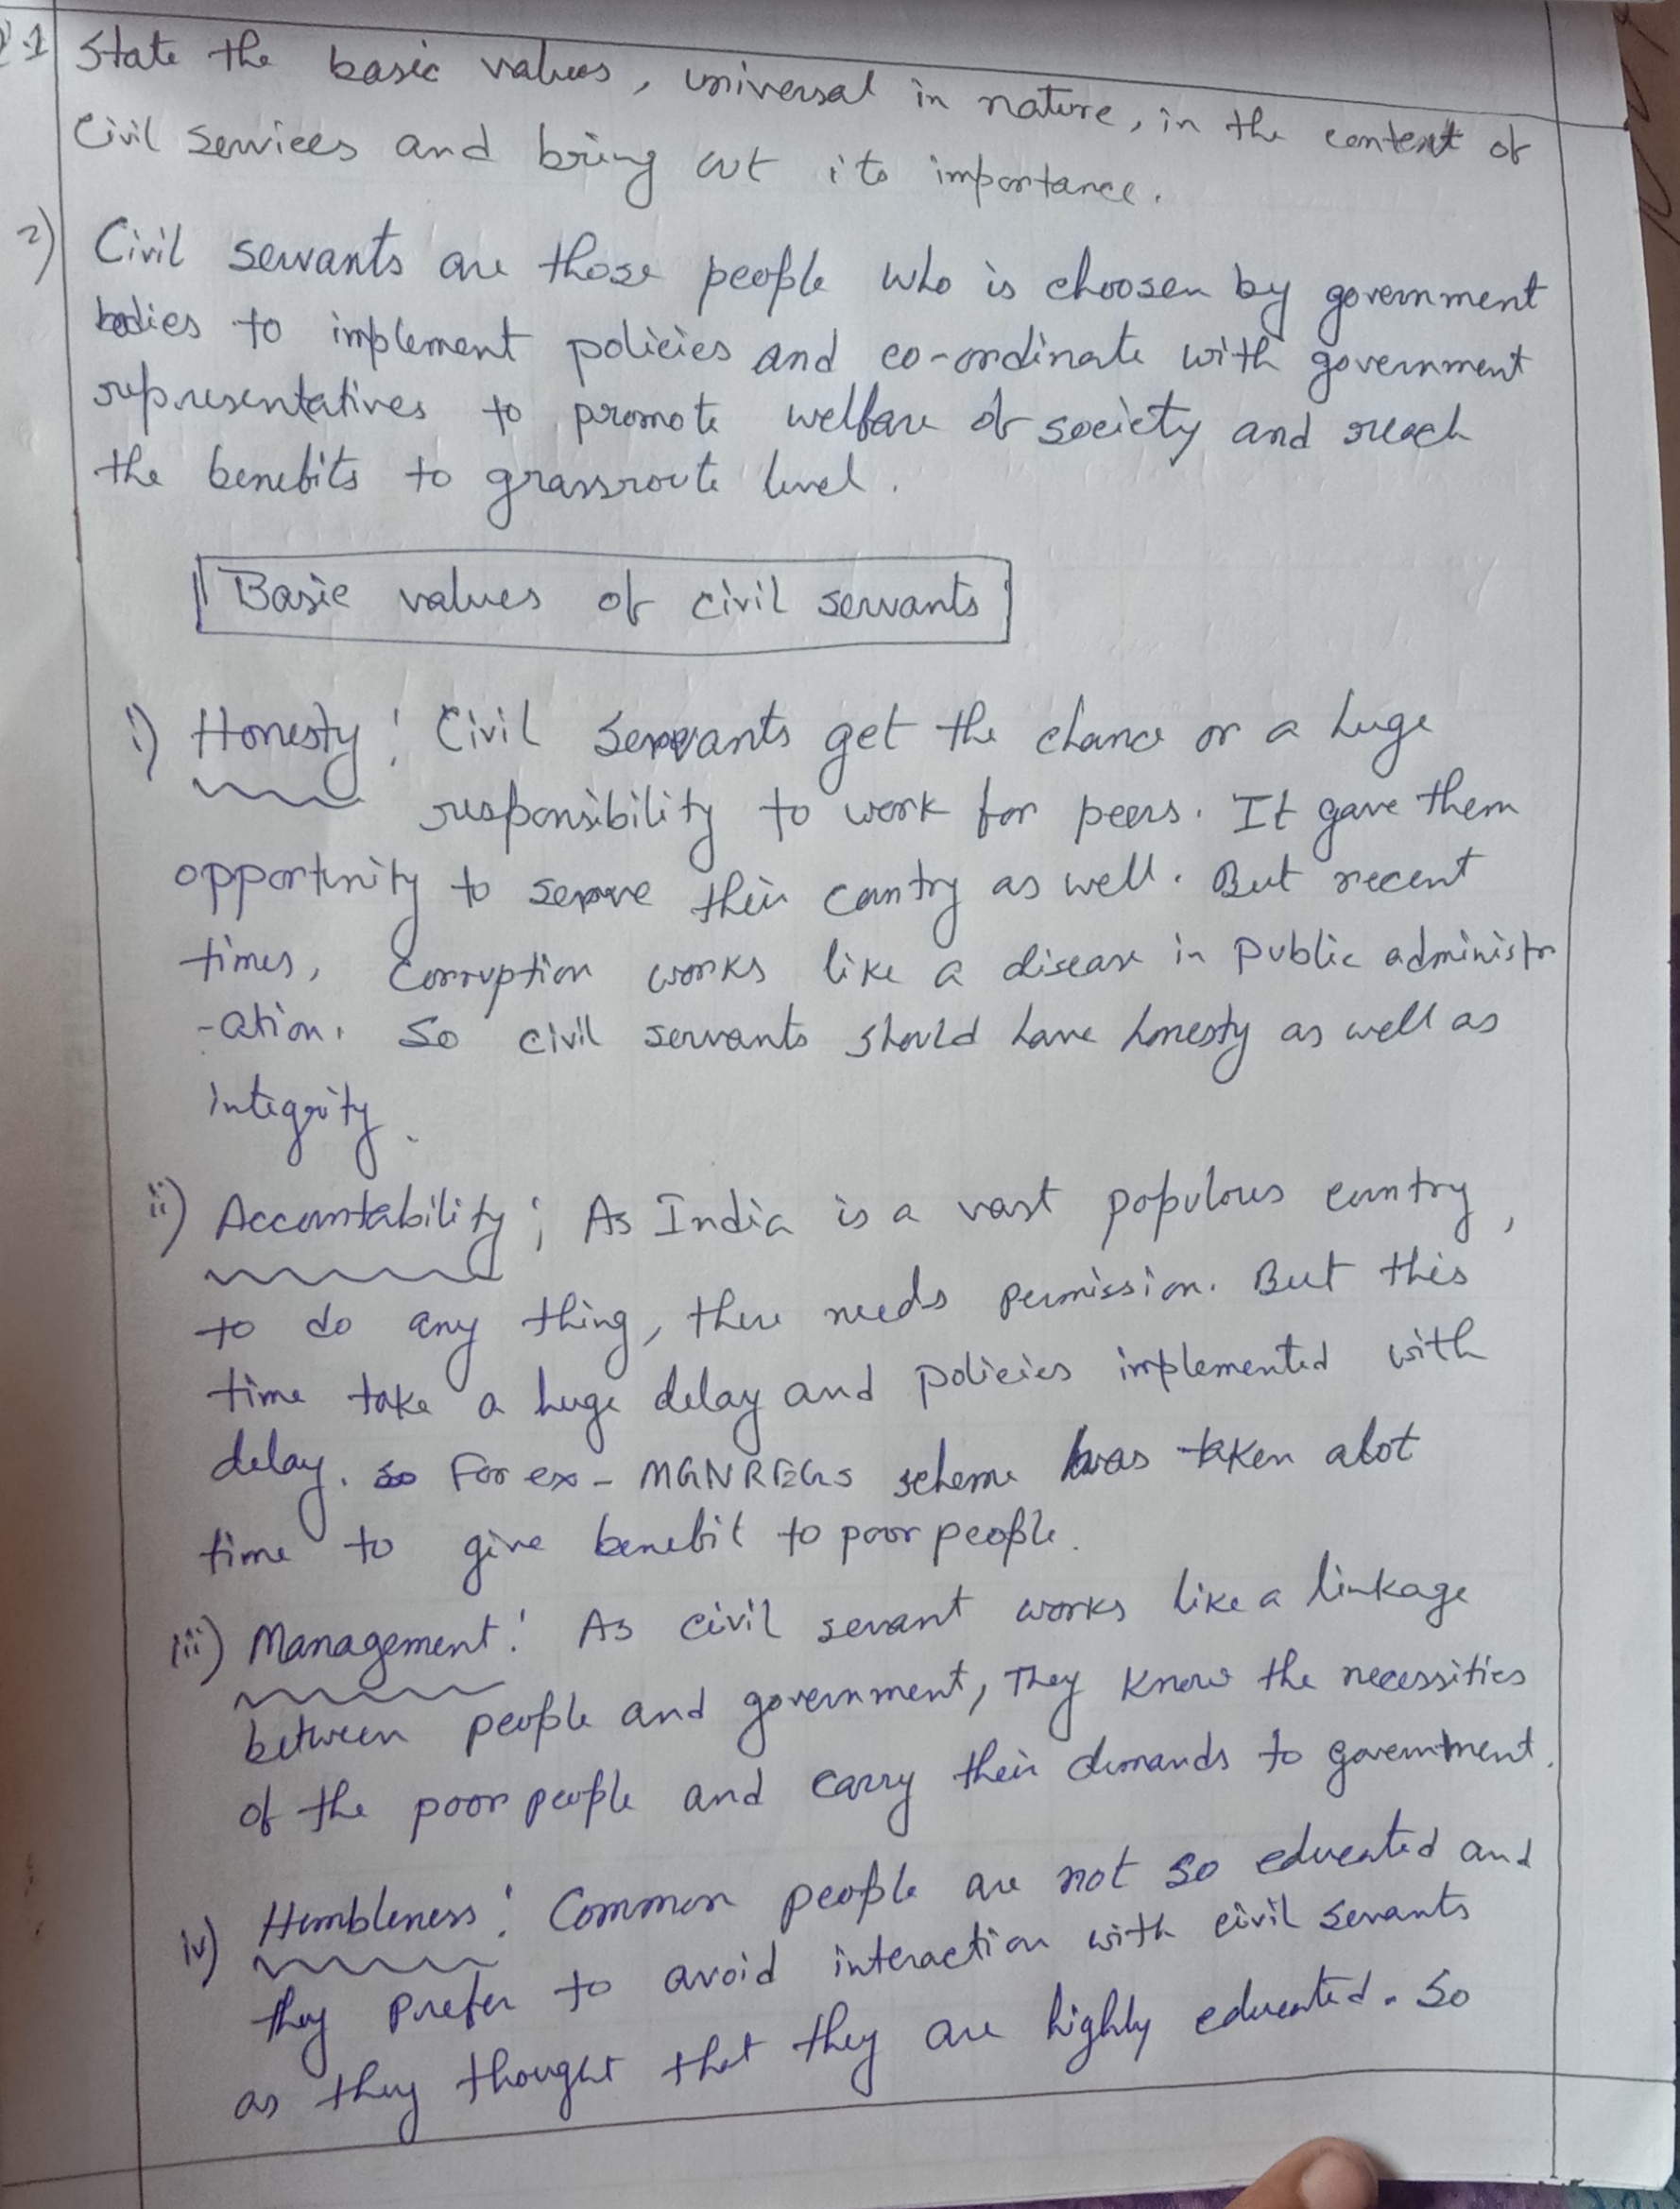 Q.1 State the basic values, universal in nature, in the context of
Civil Services and bring out its importance.
2) Civil servants are those people who is choosen by government
bodies to implement policies and co-ordinate with government
representatives to promote welfare of society and reach
the benefits to grassroute level.
Basic values of civil servants
i) Honesty : Civil Servants get the chance or a huge
responsibility to work for peers. It gave them
opportunity to serve their country as well. But recent
times, Corruption works like a disease in public administr
-ation. So civil servants should have honesty as well as
integrity.
ii) Accountability ; As India is a vast populous country,
to do any thing, there needs permission. But this
time take a huge delay and policies implemented with
delay. For ex - MGNREGS scheme was taken alot
time to give benefit to poor people.
iii) Management : As civil servant works like a linkage
between people and government, They know the necessities
of the poor people and carry their demands to government.
iv) Humbleness : Common people are not so educated and
they prefer to avoid interaction with civil servants
as they thought that they are highly educated. So